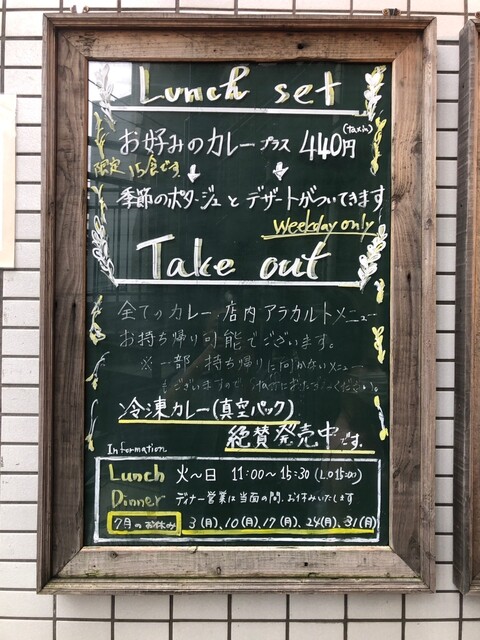 Lunch set
お好みのカレープラス 440円 (taxin)
限定 15食です
↓ ↓
季節のポタージュとデザートがついてきます
Weekday only
Take out
全てのカレー、店内アラカルトメニュー
お持ち帰り可能でございます。
※一部 持ち帰りに向かないメニュー
もございますので
冷凍カレー(真空パック)
絶賛発売中です。
Information
Lunch 火～日 11:00～15:30 (L.O 15:00)
Dinner ディナー営業は当面の間、お休みいたします
7月のお休み 3(月)、10(月)、17(月)、24(月)、31(月)